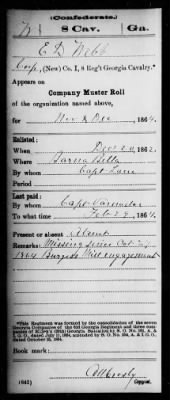 (Confederate.)
W 8 Cav. Ga.
E D Webb
Corp, (New) Co. I, 8 Reg't Georgia Cavalry.*
Appears on
Company Muster Roll
of the organization named above,
for Nov & Dec 1864.
Enlisted:
When 1862.
Where
By whom Capt Lane
Period
Last paid:
By whom Capt
To what time Feb 29, 1864.
Present or absent Absent
Remarks: Missing since Oct 27
1864 Burgess Mill engagement
*This Regiment was formed by the consolidation of the seven
Georgia Companies of the 62d Georgia Regiment and three
Book mark:
(642)
Copyist.